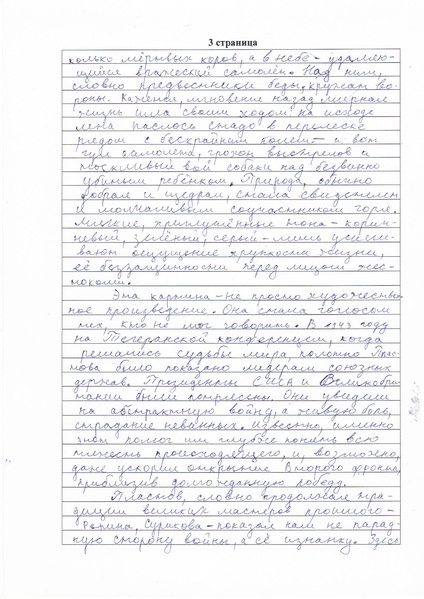 3 страница
колько мёртвых коров, а в небе - удаляю-
щийся вражеский самолёт. Над ним,
словно предвестники беды, кружат во-
роны. Кажется, мгновение назад мирная
жизнь шла своим ходом на исходе
лета паслось стадо в перелеске
рядом с бескрайним полем - и вот
гул самолёта, грохот выстрелов и
тоскливый вой собаки над безвинно
убитым ребёнком. Природа, обычно
добрая и щедрая, стала свидетелем
и молчаливым соучастником горя.
Мягкие, приглушённые тона - корич-
невый, зелёный, серый - лишь усили-
вают ощущение хрупкости жизни,
её беззащитности перед лицом жес-
токости.
Эта картина - не просто художествен-
ное произведение. Она стала голосом
тех, кто не мог говорить. В 1943 году
на Тегеранской конференции, когда
решались судьбы мира, полотно Плас-
това было показано лидерам союзных
держав. Президенты США и Великобри-
тании были потрясены. Они увидели
не абстрактную войну, а живую боль,
страдание невинных. Известно, именно
это помог им глубже понять всю
тяжесть происходящего, и, возможно,
даже ускорил открытие Второго фронта,
приблизив долгожданную победу.
Пластов, словно продолжая тра-
диции великих мастеров прошлого -
Репина, Сурикова - показал нам не парад-
ную сторону войны, а её изнанку. Здесь